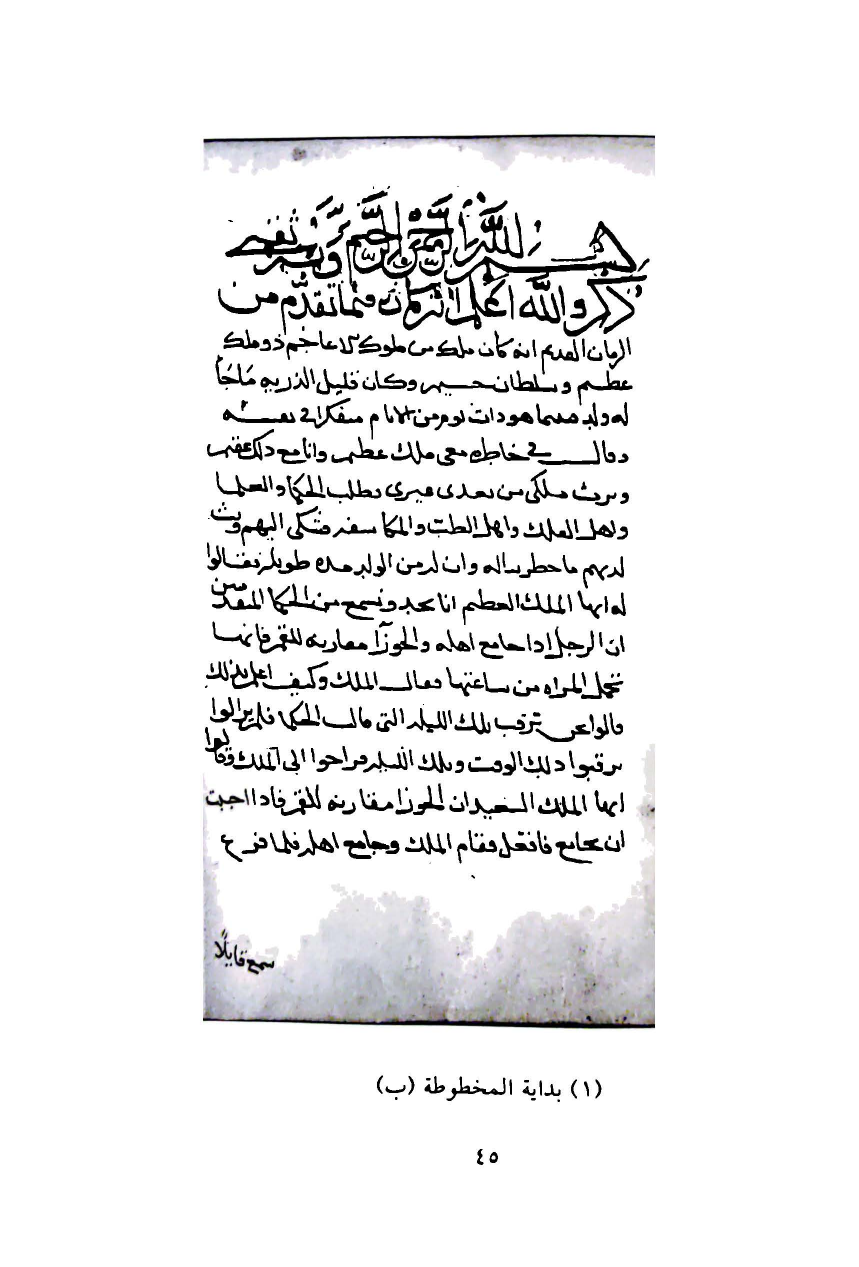 بسم الله الرحمن الرحيم وبه ثقتي
ذكر والله اعلم انه كان فيما تقدم من
الزمان القديم انه كان ملك من ملوك الاعاجم ذو ملك
عظيم وسلطان جسيم وكان قليل الذريه ما جا
له ولد فبينما هو ذات يوم من الايام متفكرا في نفسه
وقال في خاطره معي ملك عظيم وانا مع ذلك عقيم
ويرث ملكي من بعدي غيري فطلب الحكما والعلما
واهل الفلك واهل الطب والفلاسفه وشكى اليهم وبث
لديهم ما خطر بباله وان له زمن الولد مده طويله فقالوا
له ايها الملك العظيم انا نجد ونسمع من الحكما المتقدمين
ان الرجل اذا جامع اهله والجوزا مقاربه للقمر فانها
تحمل المراه من ساعتها فقال الملك وكيف اعلم بذلك
قالوا نحن نترقب تلك الليله التي قالت الحكما فلم يزالوا
يرقبوا ذلك الوقت وتلك الليله فراحوا الى الملك وقالوا
ايها الملك السعيد ان الجوزا مقاربه للقمر فاذا احببت
ان تجامع فافعل فقام الملك وجامع اهله فلما فرغ
سمع قايلًا
(١) بداية المخطوطة (ب)
٤٥